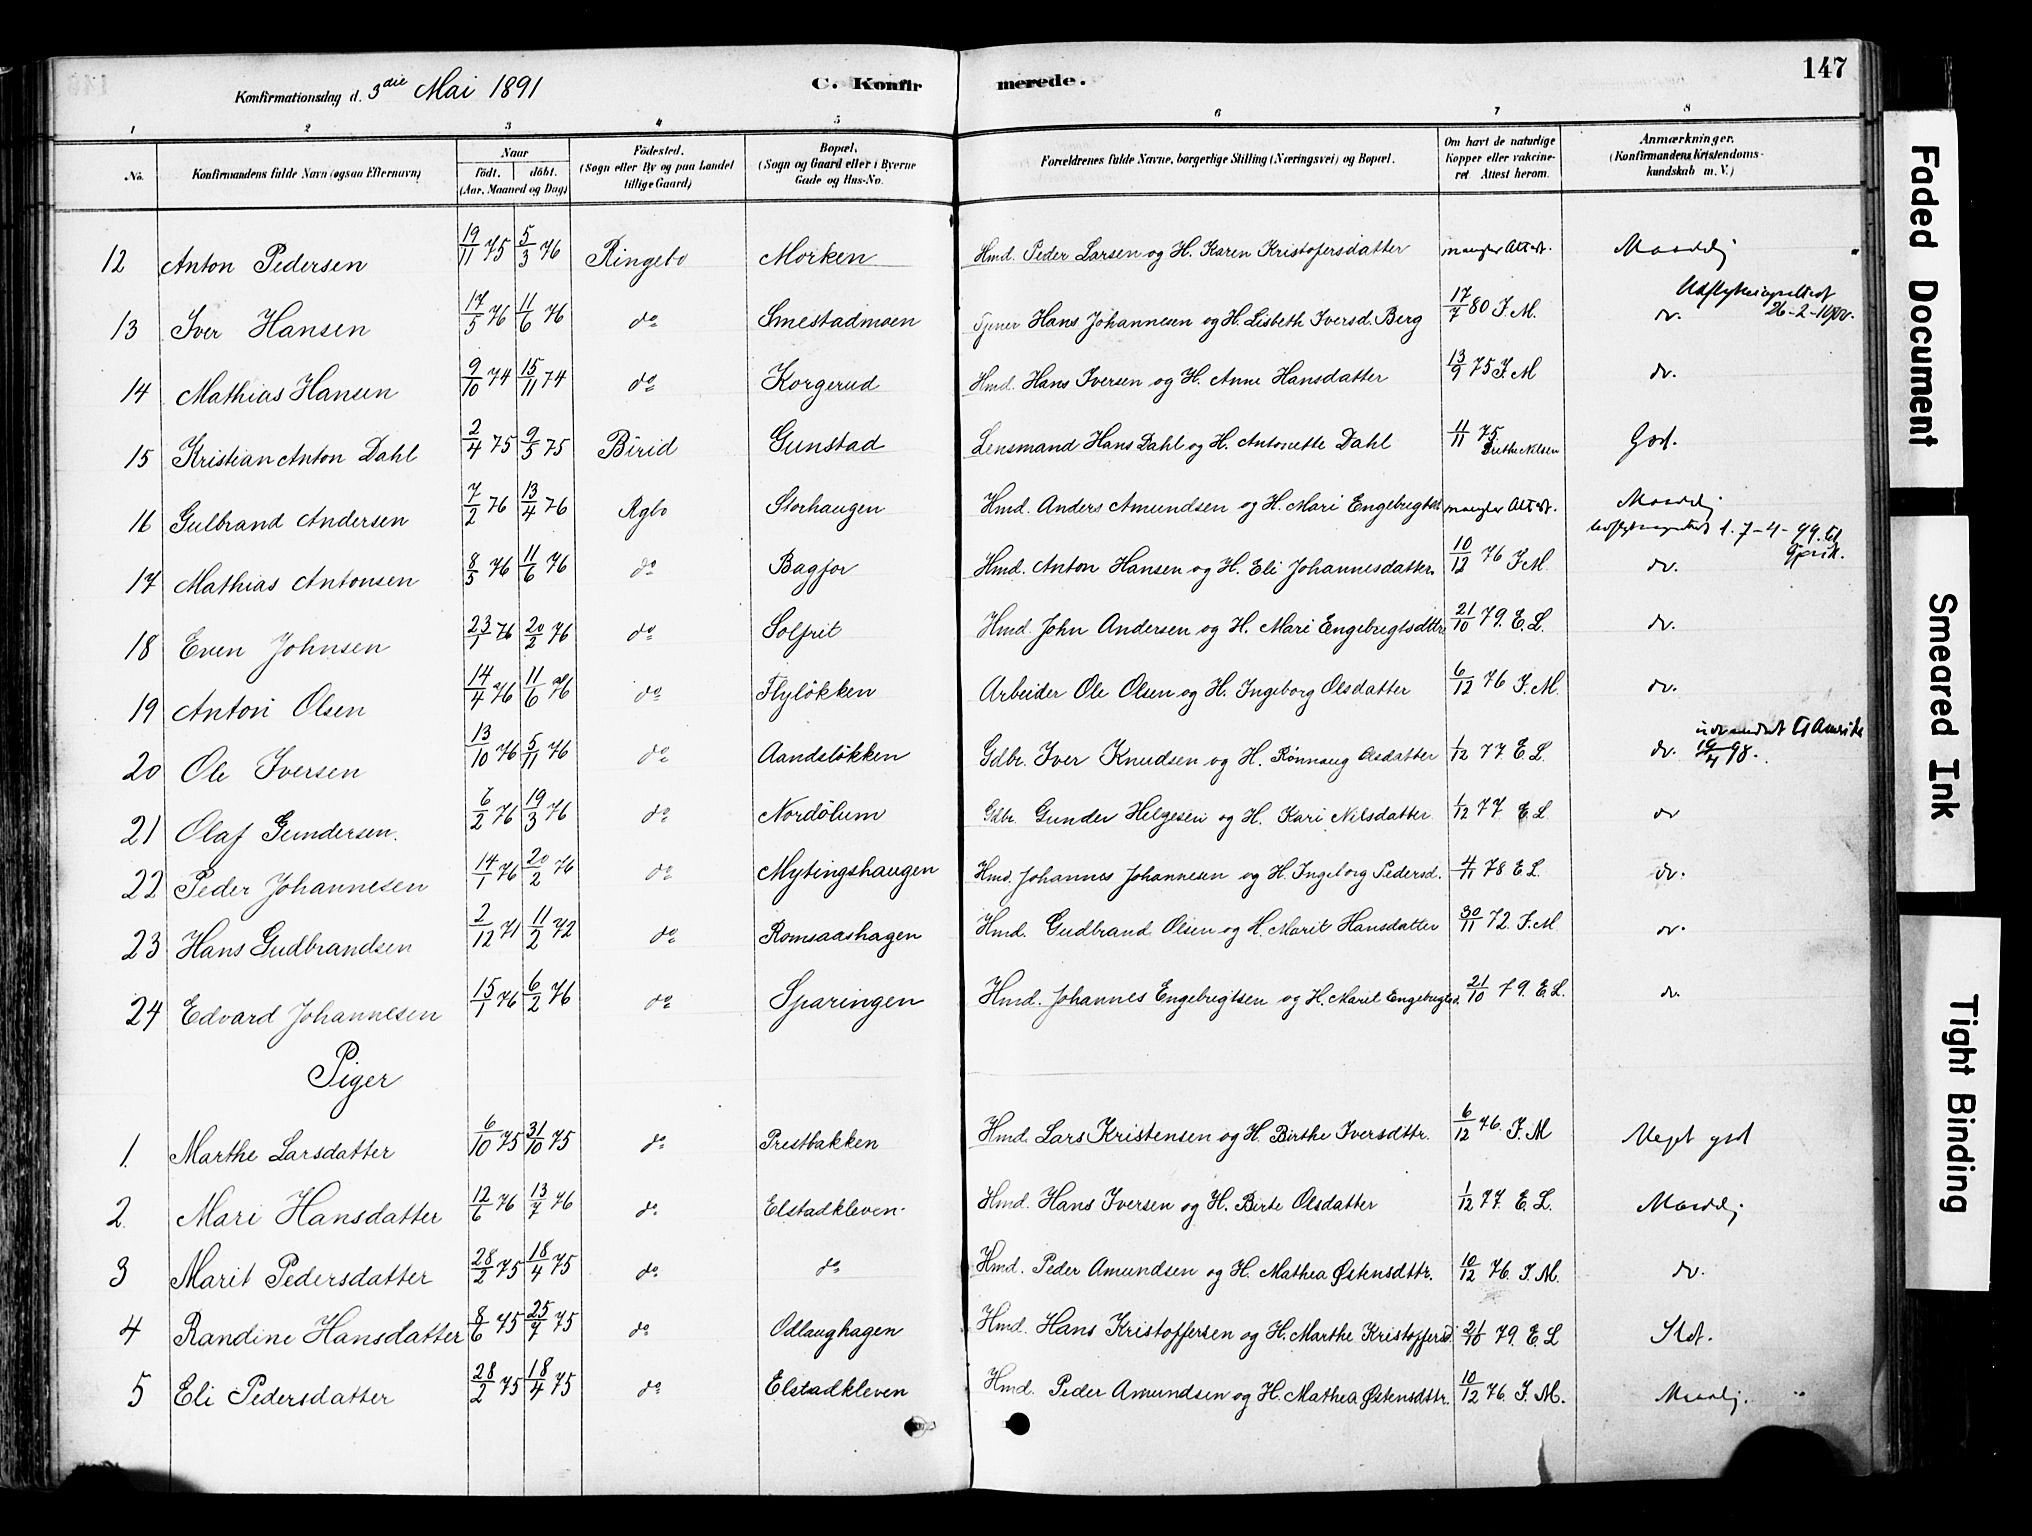 147
Konfirmationsdag d. 3die Mai 1891 C. Konfirmerede.
1 2 3 4 5 6 7 8
No. Konfirmandens fulde Navn (ogsaa Efternavn) Naar födt. döbt. (Aar, Maaned og Dag) Födested. (Sogn eller By og paa Landet tillige Gaard) Bopæl. (Sogn og Gaard eller i Byerne Gade og Hus-No. Forældrenes fulde Navne, borgerlige Stilling (Næringsvei) og Bopæl. Om havt de naturlige Kopper eller vakcineret Attest herom. Anmærkninger. (Konfirmandens Kristendomskundskab m. V.)
12 Anton Pedersen 19/11 75 5/3 76 Ringebo Morken Hmd. Peder Larsen og H. Karen Kristofersdatter mangler Attest. Maadelig
13 Iver Hansen 17/5 76 11/6 76 do Smestadmoen Tjener Hans Johannesen og H. Lisbeth Iversd. Berg 17/7 80 J. M. do. Udflytningsattest 26-2-
14 Mathias Hansen 9/10 74 15/11 74 do Korgerud Hmd. Hans Iversen og H. Anne Hansdatter 13/9 75 J. M do.
15 Kristian Anton Dahl 2/4 75 9/5 75 Birid Gunstad Lensmand Hans Dahl og H. Antonette Dahl 11/11 75 Grethe Nilsen God.
16 Gulbrand Andersen 7/2 76 13/4 76 Rgbo Storhaugen Hmd. Anders Amundsen og H. Mari Engebrigtsd. mangler Attest. Maadelig
Udflytningsattest 1. 7-4-99. til Gjøvik.
17 Mathias Antonsen 8/5 76 11/6 76 do Bagjor Hmd. Anton Hansen og H. Eli Johannesdatter. 10/12 76 J. M. do.
18 Even Johnsen 23/1 76 20/2 76 do Solfrit Hmd. John Andersen og H. Mari Engebrigtsdttr. 21/10 79. E. L. do.
19 Anton Olsen 14/4 76 11/6 76 do Flyløkken Arbeider Ole Olsen og H. Ingeborg Olsdatter 6/12 76 J. M. do.
20 Ole Iversen 13/10 76 5/11 76 do Aandsløkken Gdbr. Iver Knudsen og H. Rønnaug Olsdatter 1/12 77 E. L. do. udvandret til Amerika 19/4 98.
21 Olaf Gundersen. 6/2 76 19/3 76 do Nordølum Gdbr. Gunder Helgesen og H. Kari Nilsdatter 1/12 77 E L do
22 Peder Johannesen 14/1 76 20/2 76 do Mytingshaugen Hmd. Johannes Johannesen og H. Ingeborg Pedersd. 4/11 78 E L. do.
23 Hans Gudbrandsen 2/12 71 11/2 72 do Romsaashagen Hmd. Gudbrand Olsen og H. Marit Hansdatter 30/11 72. J. M do.
24 Edvard Johannesen 15/1 76 6/2 76 do Sparingen Hmd. Johannes Engebrigtsen og H. Marit Engebrigtsd. 21/10 79. E. L. do.
Piger
1. Marthe Larsdatter 6/10 75 31/10 75 do Prestbakken Hmd. Lars Kristensen og H. Birthe Iversdttr. 6/12 76. J. M Meget god
2. Mari Hansdatter 12/6 76 13/7 76 do. Elstadkleven. Hmd. Hans Iversen og H. Birte Olsdatter 1/12 77. E. L. Maadelig.
3 Marit Pedersdatter 28/2 75 18/4 75 do. do Hmd. Peder Amundsen og H. Mathea Østensdttr. 10/12 76. J. M. do.
4 Randine Hansdatter 8/6 75 25/7 75 do Odlaughagen Hmd. Hans Kristoffersen og H. Marthe Kristoffersd. 21/10 79. E. L Slet.
5 Eli Pedersdatter 28/2 75 18/4 75 do Elstadkleven Hmd. Peder Amundsen og H. Mathea Østensdttr. 10/12 76. J. M. Maadelig.
Faded Document
Smeared Ink
Tight Binding